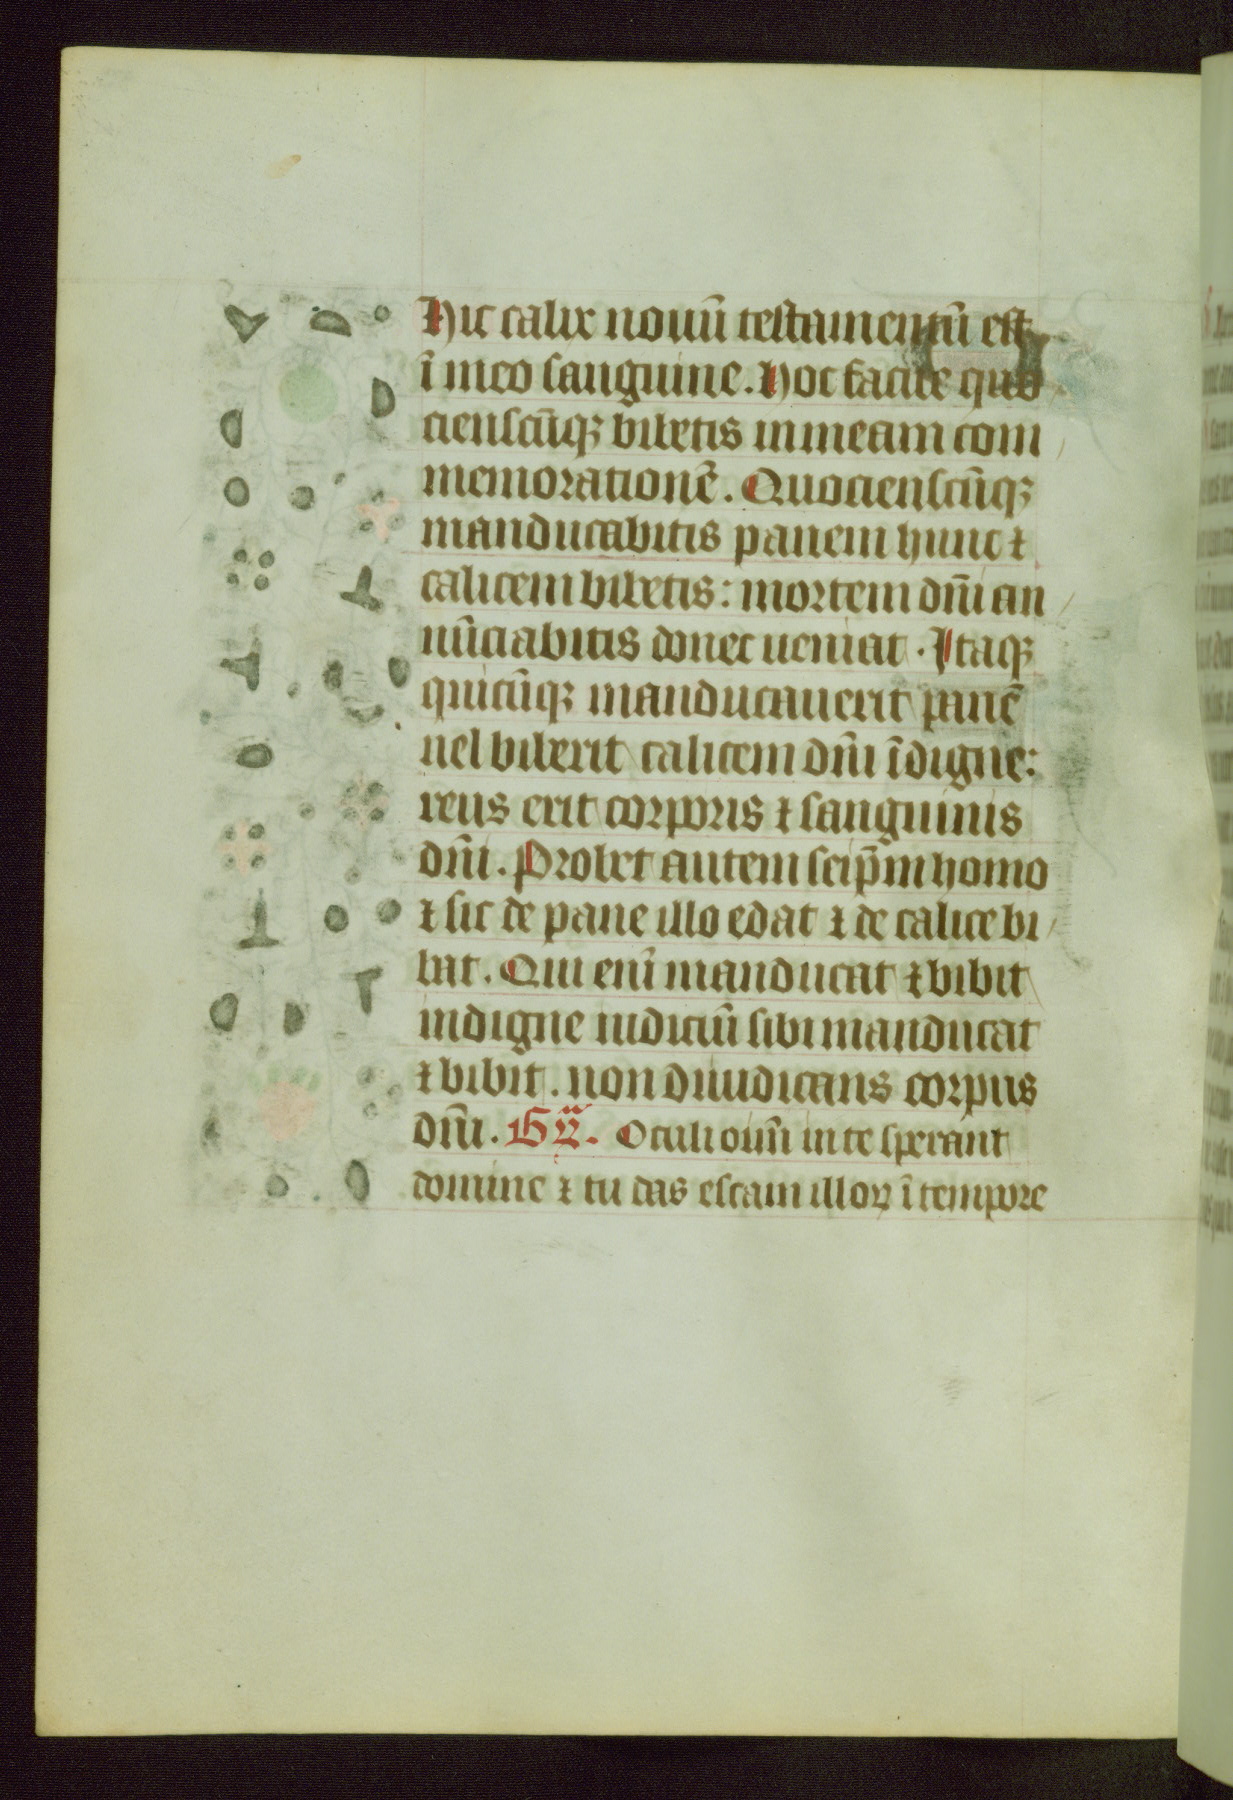 Hic calix nouū testamentū est
ī meo sanguine. Hoc facite quo
cienscūqꝫ bibetis in meam com
memorationē. Quocienscūqꝫ
manducabitis panem hunc ⁊
calicem bibetis: mortem dn̄i an
nūciabitis donec ueniat. Itaqꝫ
quicūqꝫ manducauerit panē
uel biberit calicem dn̄i īdigne:
reus erit corporis ⁊ sanguinis
dn̄i. Probet autem seip̄m homo
⁊ sic de pane illo edat ⁊ de calice bi
bat. Qui enī manducat ⁊ bibit
indigne iudiciū sibi manducat
⁊ bibit. non diiudicans corpus
dn̄i. Oculi oīm in te sperant
domine ⁊ tu das escam illoꝝ ī tempore